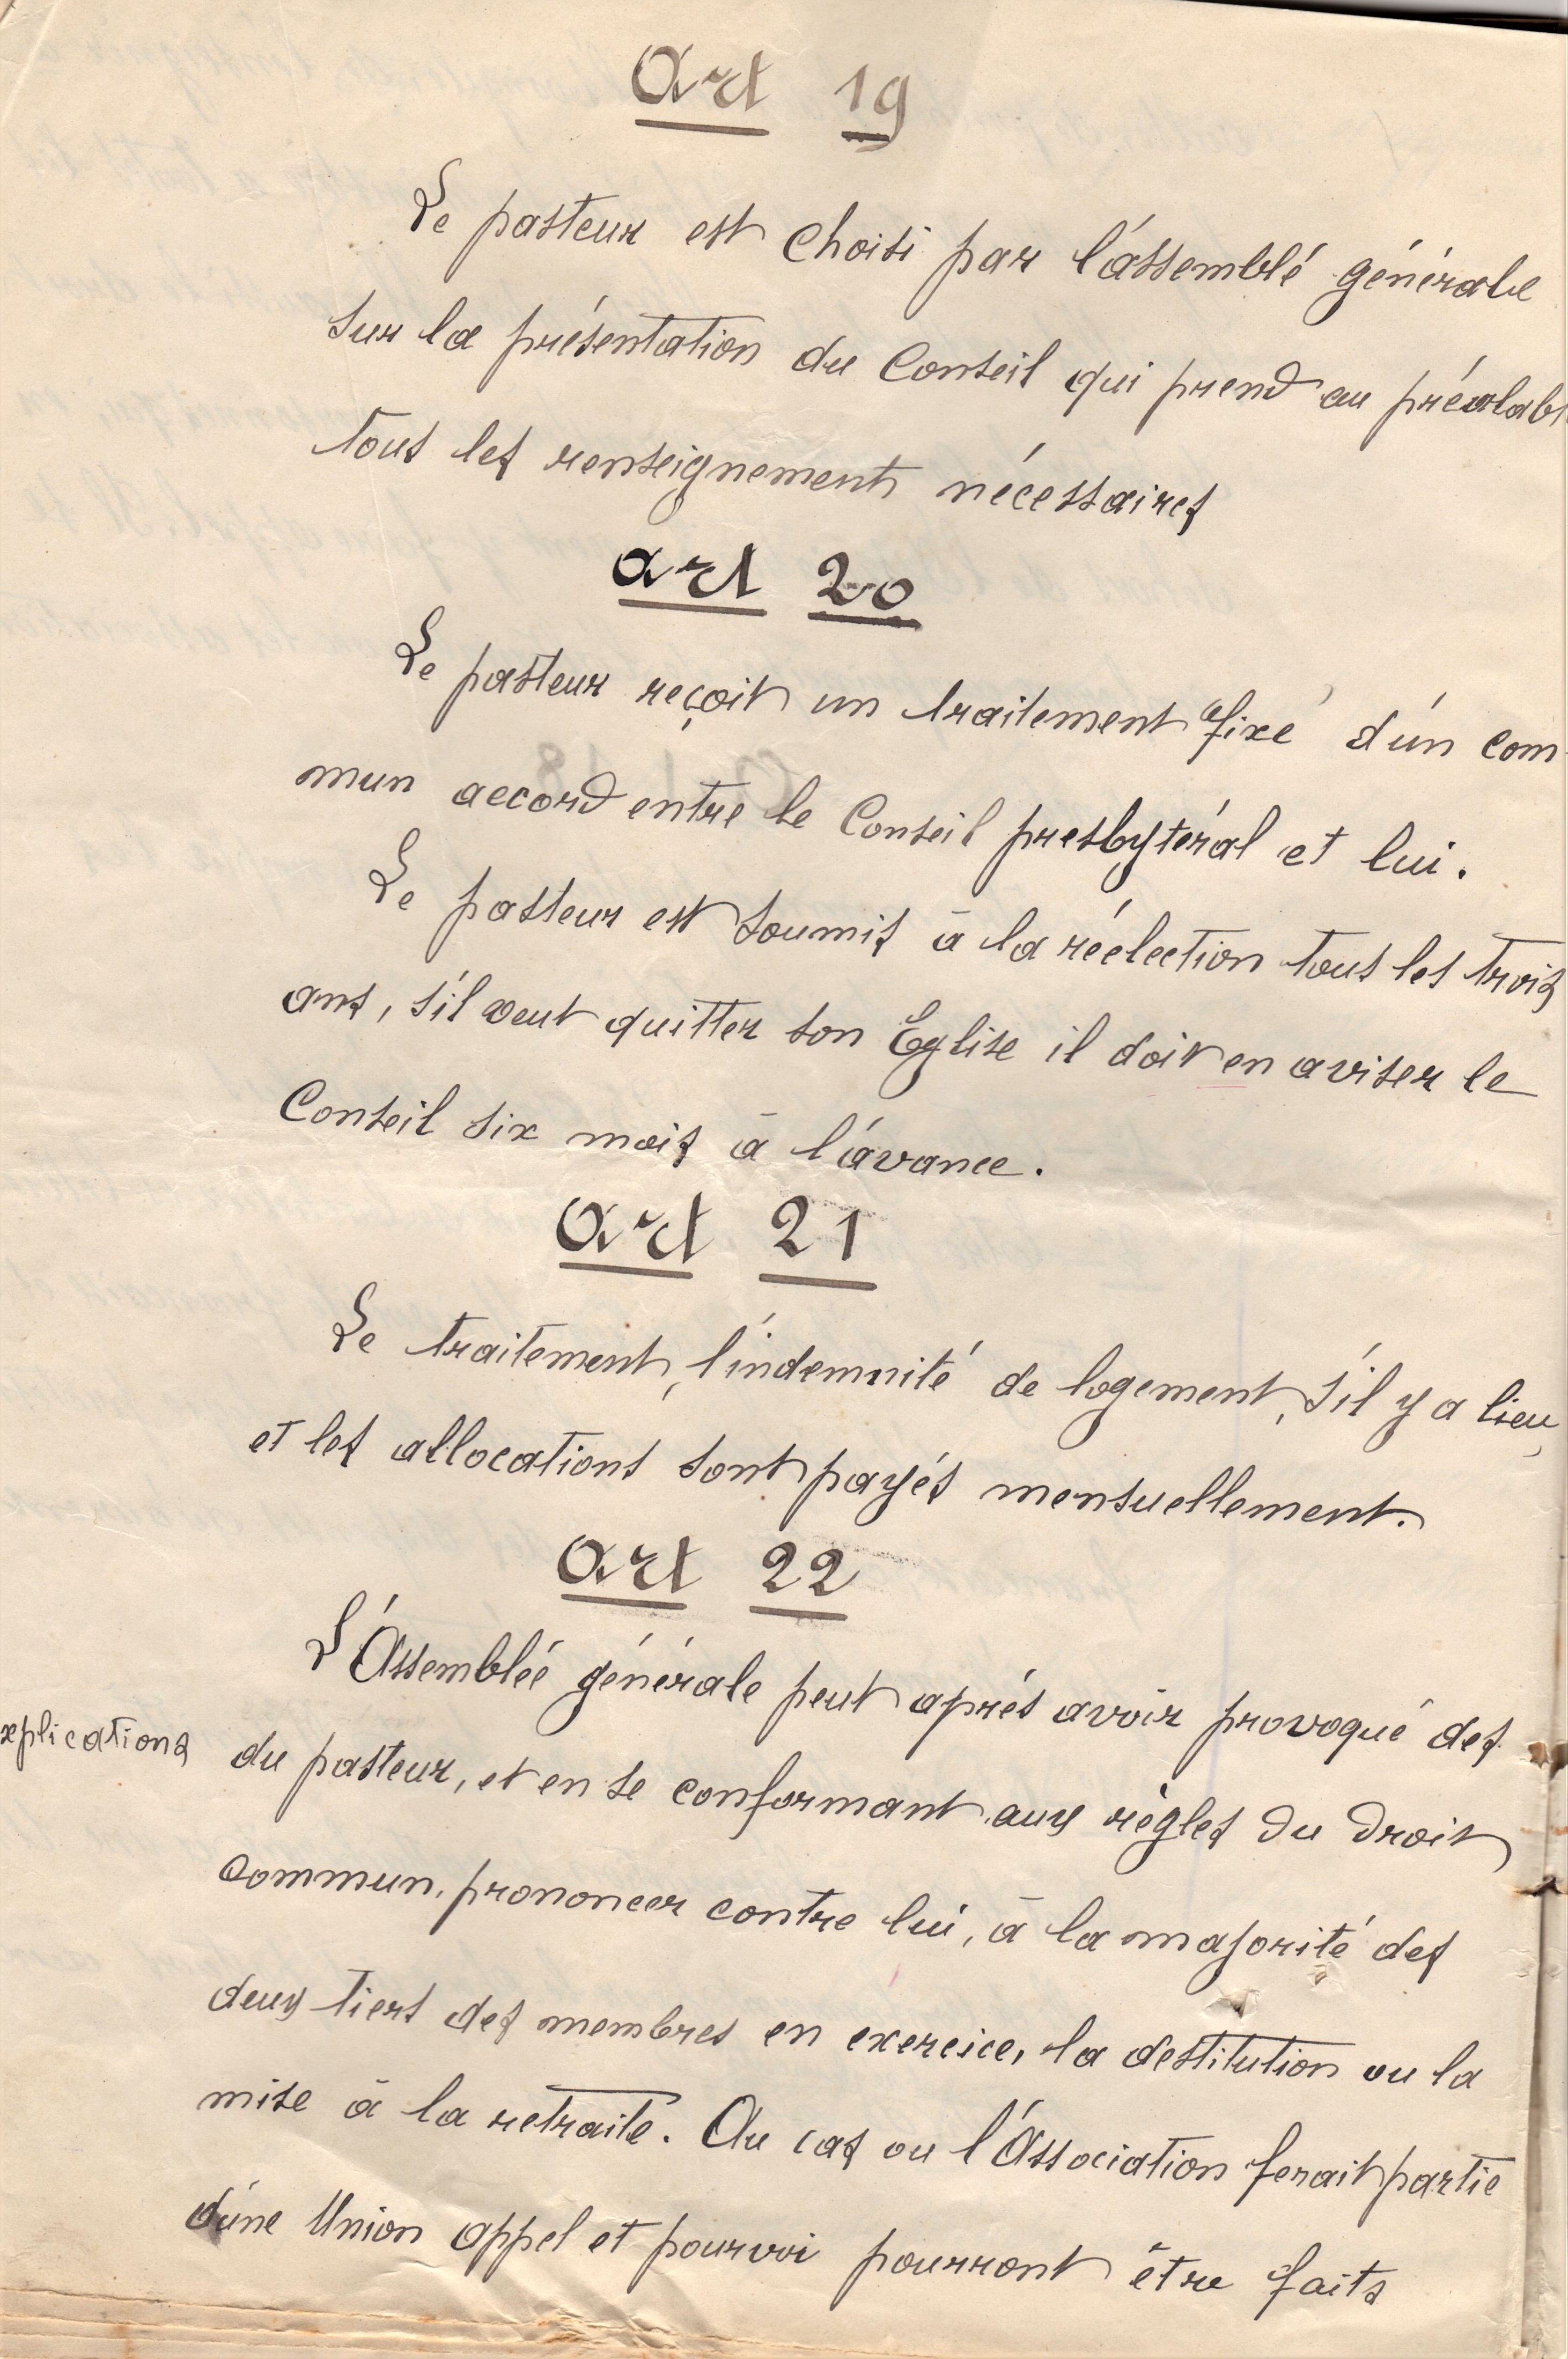 Art 19
Le pasteur est choisi par l'assemblé générale
sur la présentation du Conseil qui prend au préalabl
tous les renseignements nécessaires
art 20
Le pasteur reçoit un traitement fixé d'un com-
mun accord entre le Conseil presbytéral et lui.
Le pasteur est soumis à la réélection tous les trois
ans, s'il veut quitter son Eglise il doit en aviser le
Conseil six mois à l'avance.
Art 21
Le traitement, l'indemnité de logement, s'il y a lieu,
et les allocations sont payés mensuellement.
Art 22
L'Assemblée générale peut aprés avoir provoqué des
xplications du pasteur, et en se conformant aux règles du droit
commun, prononcer contre lui, à la majorité des
deux tiers des membres en exercice, la destitution ou la
mise à la retraite. Au cas ou l'Association ferait partie
d'une Union appel et pourvoi pourront être faits